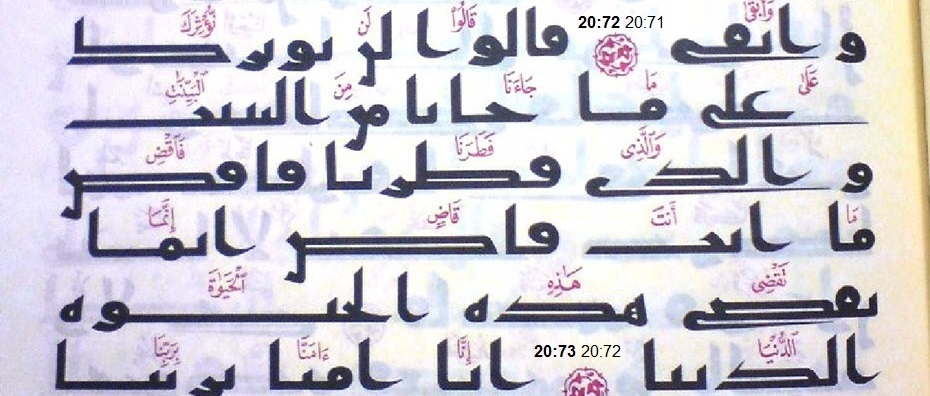 وَأَبْقَىٰ قَالُوا۟ لَن نُّؤْثِرَكَ
20:72 20:71
و ابقى قالوا لن نوثرك
عَلَىٰ مَا جَآءَنَا مِنَ ٱلْبَيِّنَٰتِ
على ما جانا من البينت
وَٱلَّذِى فَطَرَنَا فَٱقْضِ
و الذى فطرنا فاقض
مَآ أَنتَ قَاضٍ إِنَّمَا
ما انت قاض انما
تَقْضِى هَٰذِهِ ٱلْحَيَوٰةَ
تقضى هذه الحيوه
ٱلدُّنْيَآ إِنَّآ ءَامَنَّا بِرَبِّنَا
20:73 20:72
الدنيا انا امنا بربنا